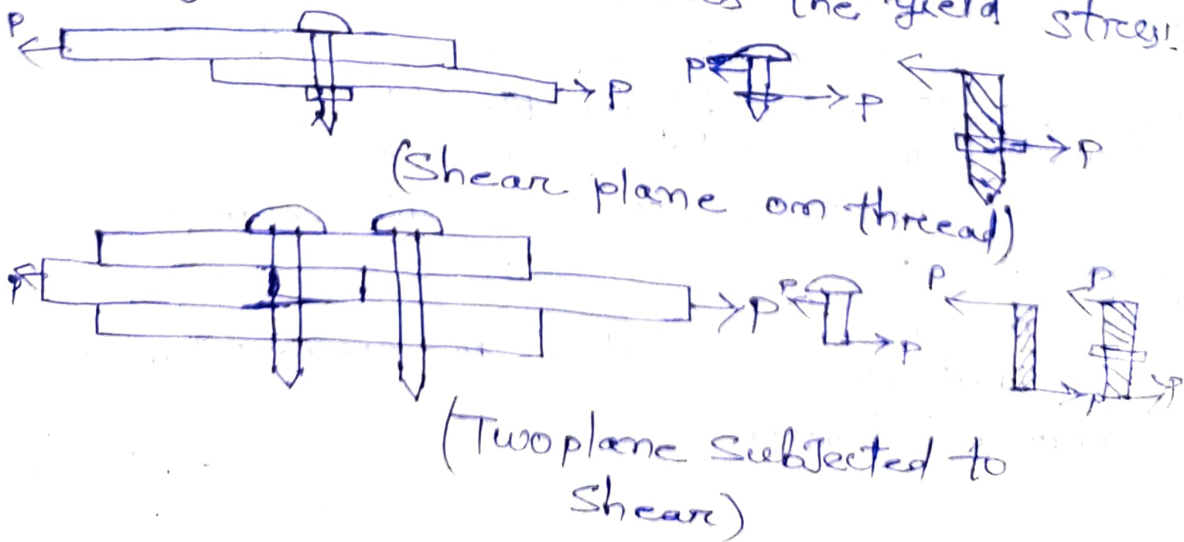 the yield stress.
P P P P P
(Shear plane on thread)
P P P P P P P P
(Two plane Subjected to
Shear)